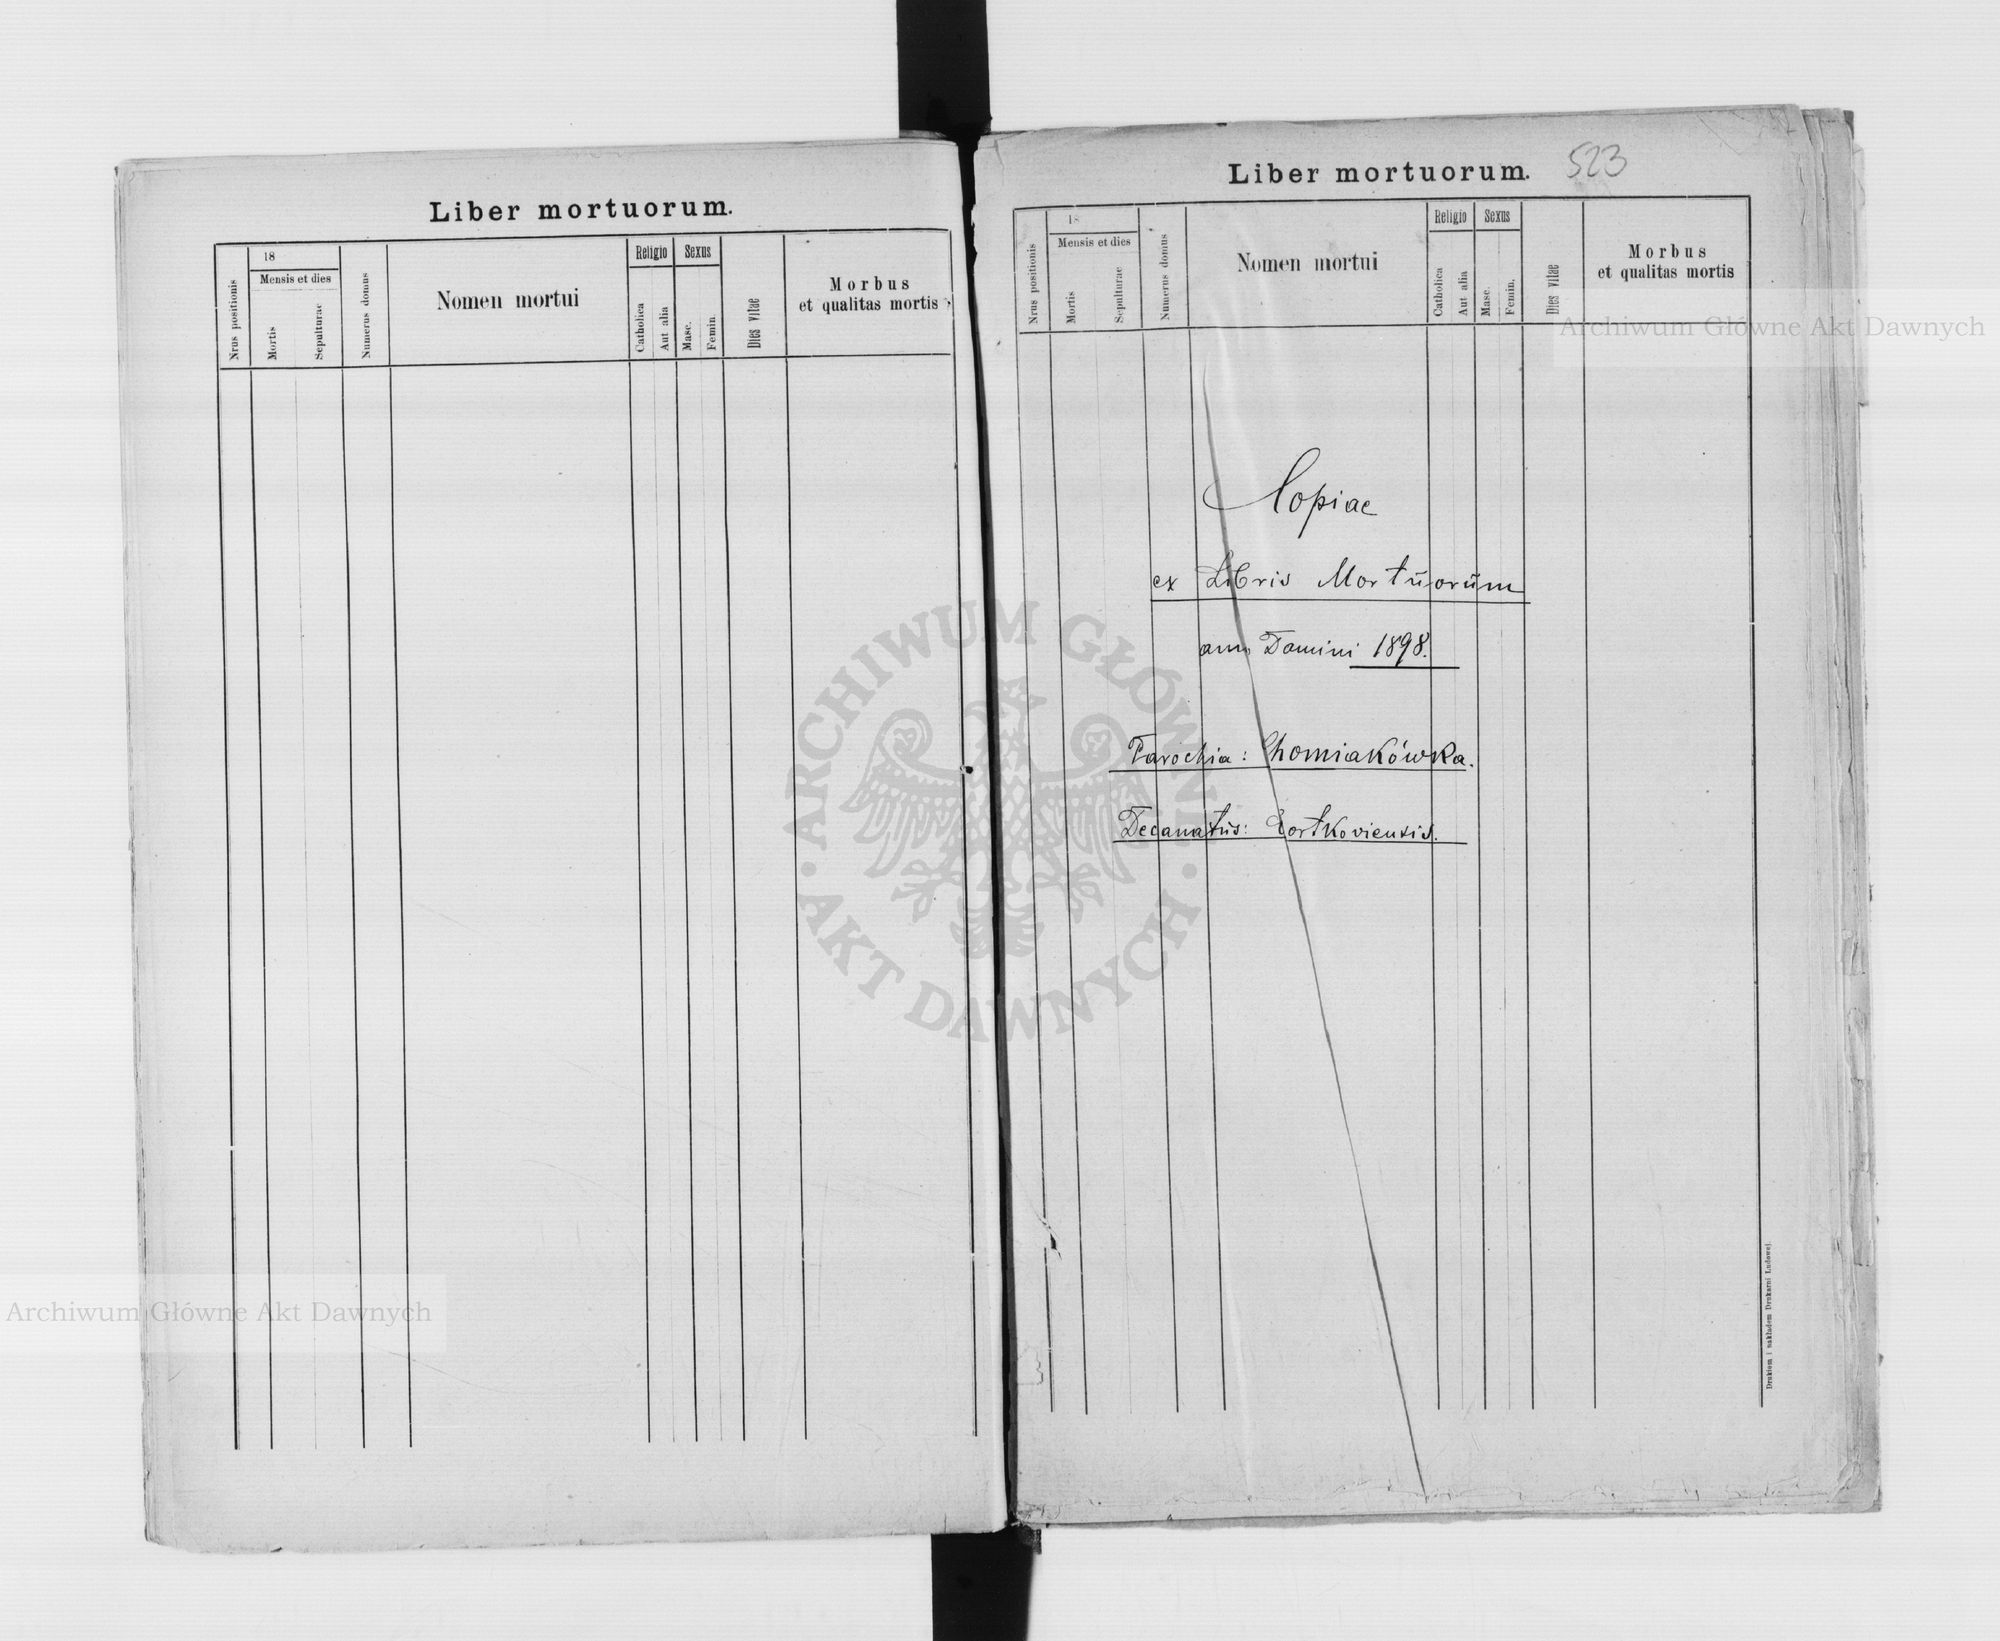 Liber mortuorum.
Nrus positionis
18
Mensis et dies
Mortis
Sepulturae
Numerus domus
Nomen mortui
Religio
Catholica
Aut alia
Sexus
Masc.
Femin.
Dies vitae
Morbus
et qualitas mortis
Liber mortuorum. 523
Nrus positionis
18
Mensis et dies
Mortis
Sepulturae
Numerus domus
Nomen mortui
Religio
Catholica
Aut alia
Sexus
Masc.
Femin.
Dies vitae
Morbus
et qualitas mortis
Copiae
ex Libris Mortuorum
anno Domini 1898.
Parochia: Chomiakówka.
Decanatus: Czortkoviensis.
Drukiem i nakładem Drukarni Ludowej.
Archiwum Główne Akt Dawnych
Archiwum Główne Akt Dawnych
ARCHIWUM GŁÓWNE AKT DAWNYCH